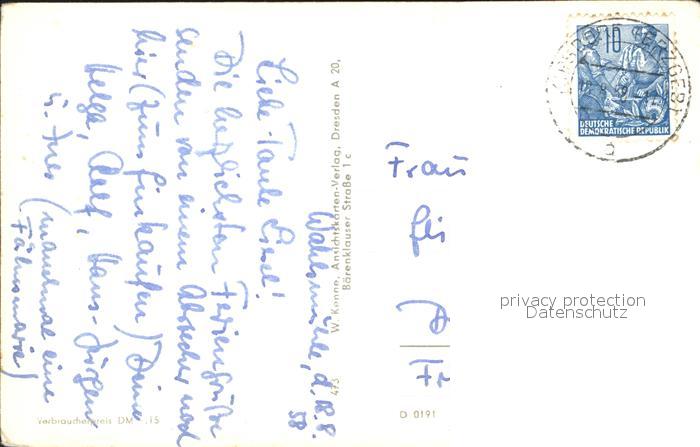 Wahlsmühle, d. 18.8.
58
Liebe Tante Liesel!
Die herzlichsten Feriengrüße
senden von einem Abstecher nach
hier (zum Einkaufen) Deine
Helga, Ralf, Hans-Jürgen
u. Ines (manchmal eine
W. Kenne, Ansichtskarten-Verlag, Dresden A 20,
Bärenklauser Straße 1 c
473
Verbraucherpreis DM -.15
D 0191
Frau
10
DEUTSCHE
DEMOKRATISCHE REPUBLIK
privacy protection
Datenschutz